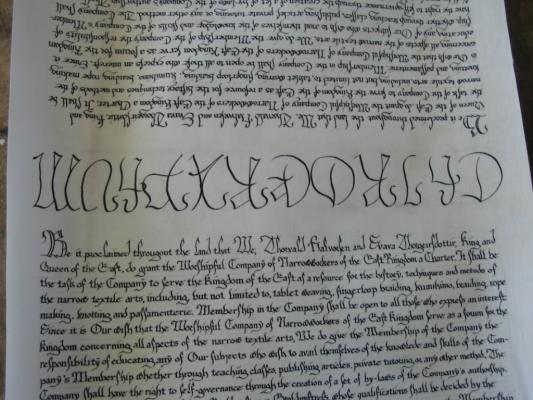 Be it proclaimed throughout the land that We, Thorvald and Svava Thorgeirsdottir, King and
Queen of the East, do grant the Worshipful Company of Narrowworkers of the East Kingdom a Charter. It shall be
the task of the Company to serve the Kingdom of the East as a resource for the history, techniques and methods of the
narrow textile arts, including, but not limited to, tablet weaving, fingerloop braiding, kumihimo, braiding, rope making,
knotting and passementerie. Membership in the Company shall be open to all those who express an interest. Since it
is Our wish that the Worshipful Company of Narrowworkers of the East Kingdom serve as a forum for the Kingdom
concerning all aspects of the narrow textile arts, We do give the Membership of the Company the responsibility of
educating any of Our Subjects who wish to avail themselves of the knowledge and skills of the Company's Member-
ship whether through teaching classes, publishing articles, private tutoring, or any other method. The Company shall
have the right to self-governance through the creation of a set of by-laws of the Company's
Be it proclaimed througout the land that We, Thorvald and Svava Thorgeirsdottir, King and
Queen of the East, do grant the Worshipful Company of Narrowworkers of the East Kingdom a Charter. It shall be
the task of the Company to serve the Kingdom of the East of a resource for the history, techniques and metods of
the narrow textile arts, including, but not limited to, tablet weaving, fingerloop braiding, kumihimo, beading, rope
making, knotting and passementerie. Membership in the Company shall be open to all those who express an interest
Since it is Our wish that the Worshipful Company of Narrowworkers of the East Kingdom serve as a forum for the
Kingdom concerning all aspects of the narrow textile arts, We do give the Membership of the Company the
responsibility of educating any of Our Subjects who wish to avail themselves of the knowledge and skills of the Com-
pany's Membership whether through teaching classes, publishing articles, private tutoring, or any other method. The
Company shall have the right to self-governance through the creation of a set of by-laws of the Company's authorship.
whose qualifications shall be decided by the
Membership